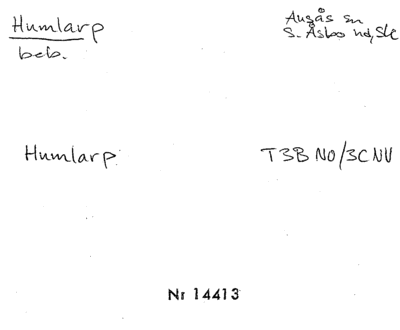 Humlarp
beb.
Ausås sn
S. Åsbo hd, Sk
Humlarp
T3B NO/3C NV
Nr 14413